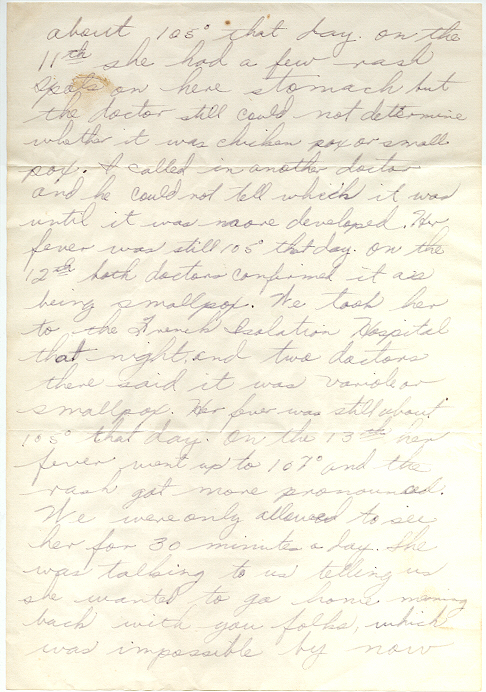 about 105° that day. on the
11th she had a few rash
spots on here stomach but
the doctor still could not determine
whether it was chicken pox or small
pox. I called in another doctor
and he could not tell which it was
until it was more developed. Her
fever was still 105° that day. on the
12th both doctors confirmed it as
being smallpox. We took her
to the French Isolation Hospital
that night, and two doctors
there said it was variole or
smallpox. Her fever was still about
105° that day. On the 13th her
fever went up to 107° and the
rash got more pronounced.
We were only allowed to see
her for 30 minutes a day. She
was talking to us telling us
she wanted to go home meaning
back with you folks, which
was impossible by now